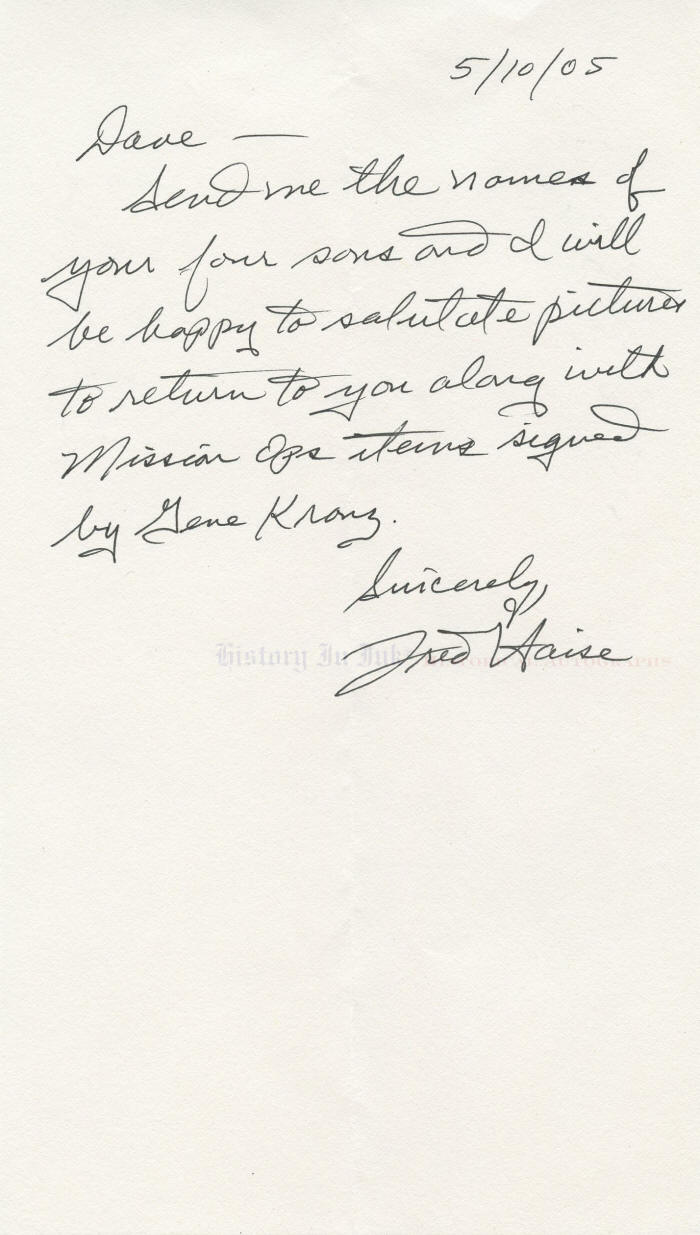 5/10/05
Dave —
Send me the names of
your four sons and I will
be happy to salutate pictures
to return to you along with
Mission Ops items signed
by Gene Kranz.
Sincerely,
Fred Haise
History In Ink HISTORICAL AUTOGRAPHS